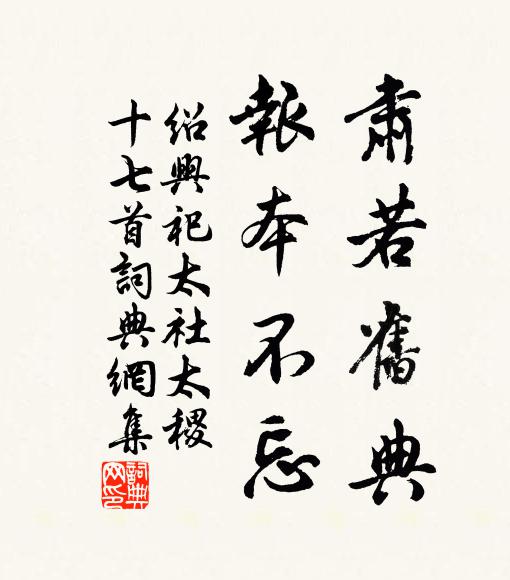 肅若舊典
報本不忘
紹興祀太社太稷
十七首詞典網集
詞典网印